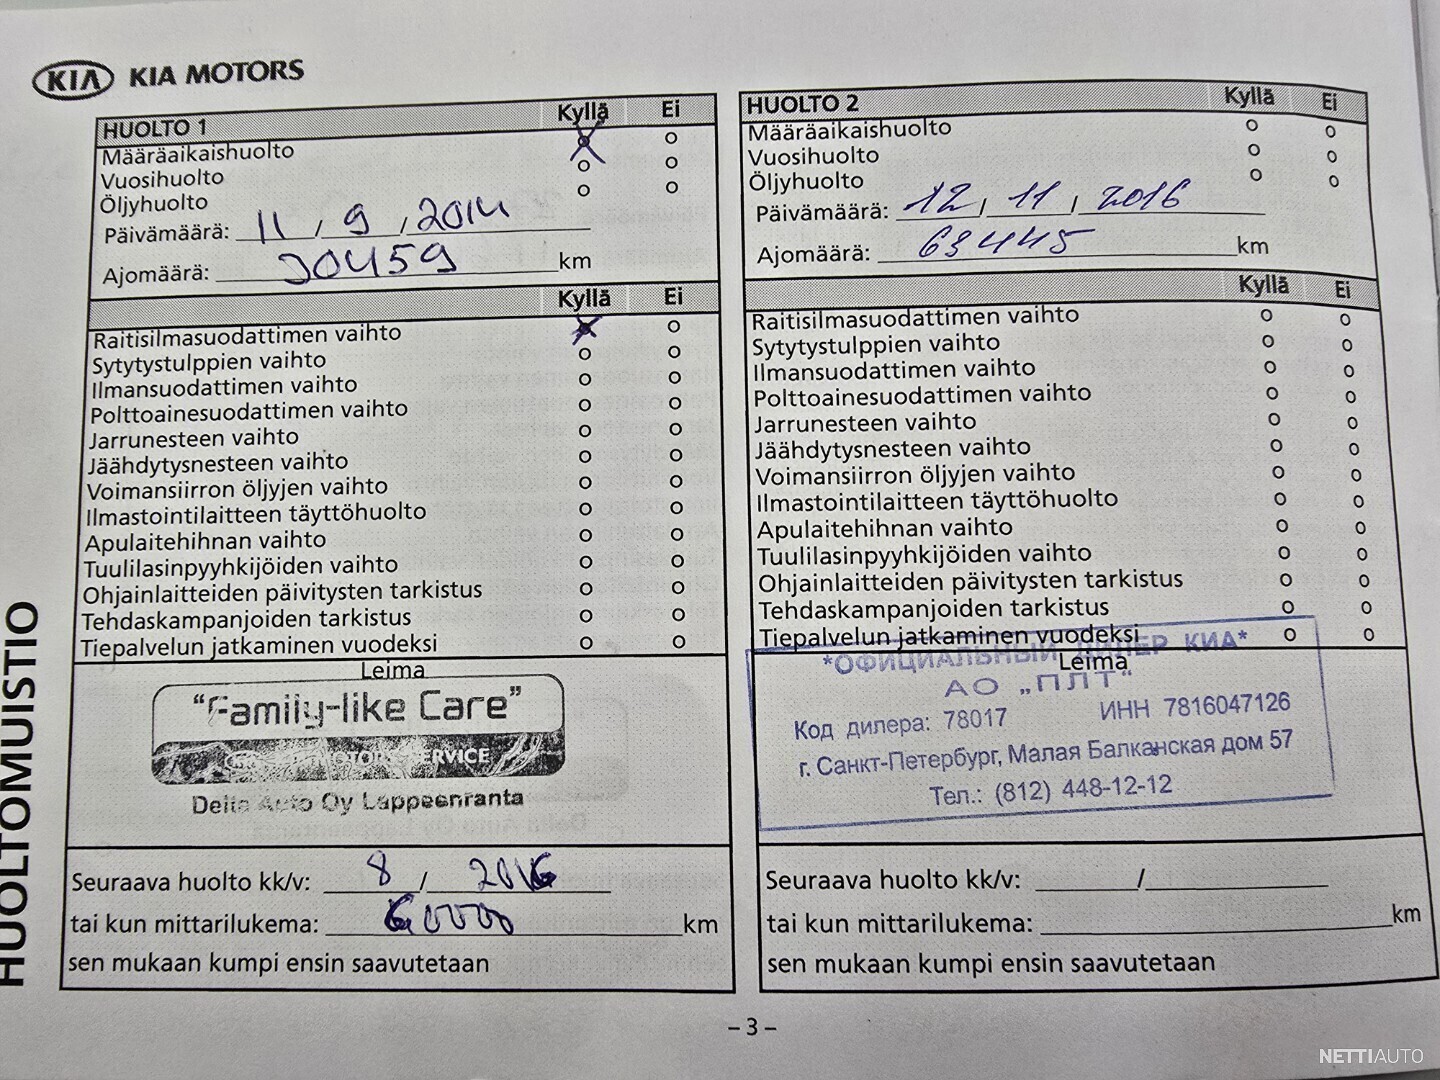 KIA KIA MOTORS
HUOLTO 1 Kyllä Ei
Määräaikaishuolto
Vuosihuolto
Öljyhuolto
Päivämäärä: 11 / 9 / 2014
Ajomäärä: 30459 km
Kyllä Ei
Raitisilmasuodattimen vaihto
Sytytystulppien vaihto
Ilmansuodattimen vaihto
Polttoainesuodattimen vaihto
Jarrunesteen vaihto
Jäähdytysnesteen vaihto
Voimansiirron öljyjen vaihto
Ilmastointilaitteen täyttöhuolto
Apulaitehihnan vaihto
Tuulilasinpyyhkijöiden vaihto
Ohjainlaitteiden päivitysten tarkistus
Tehdaskampanjoiden tarkistus
Tiepalvelun jatkaminen vuodeksi
Leima
"Family-like Care"
SERVICE
Delta Auto Oy Lappeenranta
Seuraava huolto kk/v: 8 / 2016
tai kun mittarilukema: 60000 km
sen mukaan kumpi ensin saavutetaan
HUOLTO 2 Kyllä Ei
Määräaikaishuolto
Vuosihuolto
Öljyhuolto
Päivämäärä: 12 / 11 / 2016
Ajomäärä: 63445 km
Kyllä Ei
Raitisilmasuodattimen vaihto
Sytytystulppien vaihto
Ilmansuodattimen vaihto
Polttoainesuodattimen vaihto
Jarrunesteen vaihto
Jäähdytysnesteen vaihto
Voimansiirron öljyjen vaihto
Ilmastointilaitteen täyttöhuolto
Apulaitehihnan vaihto
Tuulilasinpyyhkijöiden vaihto
Ohjainlaitteiden päivitysten tarkistus
Tehdaskampanjoiden tarkistus
Tiepalvelun jatkaminen vuodeksi
Leima
*ОФИЦИАЛЬНЫЙ ДИЛЕР КИА*
АО „ПЛТ"
Код дилера: 78017 ИНН 7816047126
г. Санкт-Петербург, Малая Балканская дом 57
Тел.: (812) 448-12-12
Seuraava huolto kk/v: /
tai kun mittarilukema: km
sen mukaan kumpi ensin saavutetaan
HUOLTOMUISTIO
– 3 –
NETTIAUTO